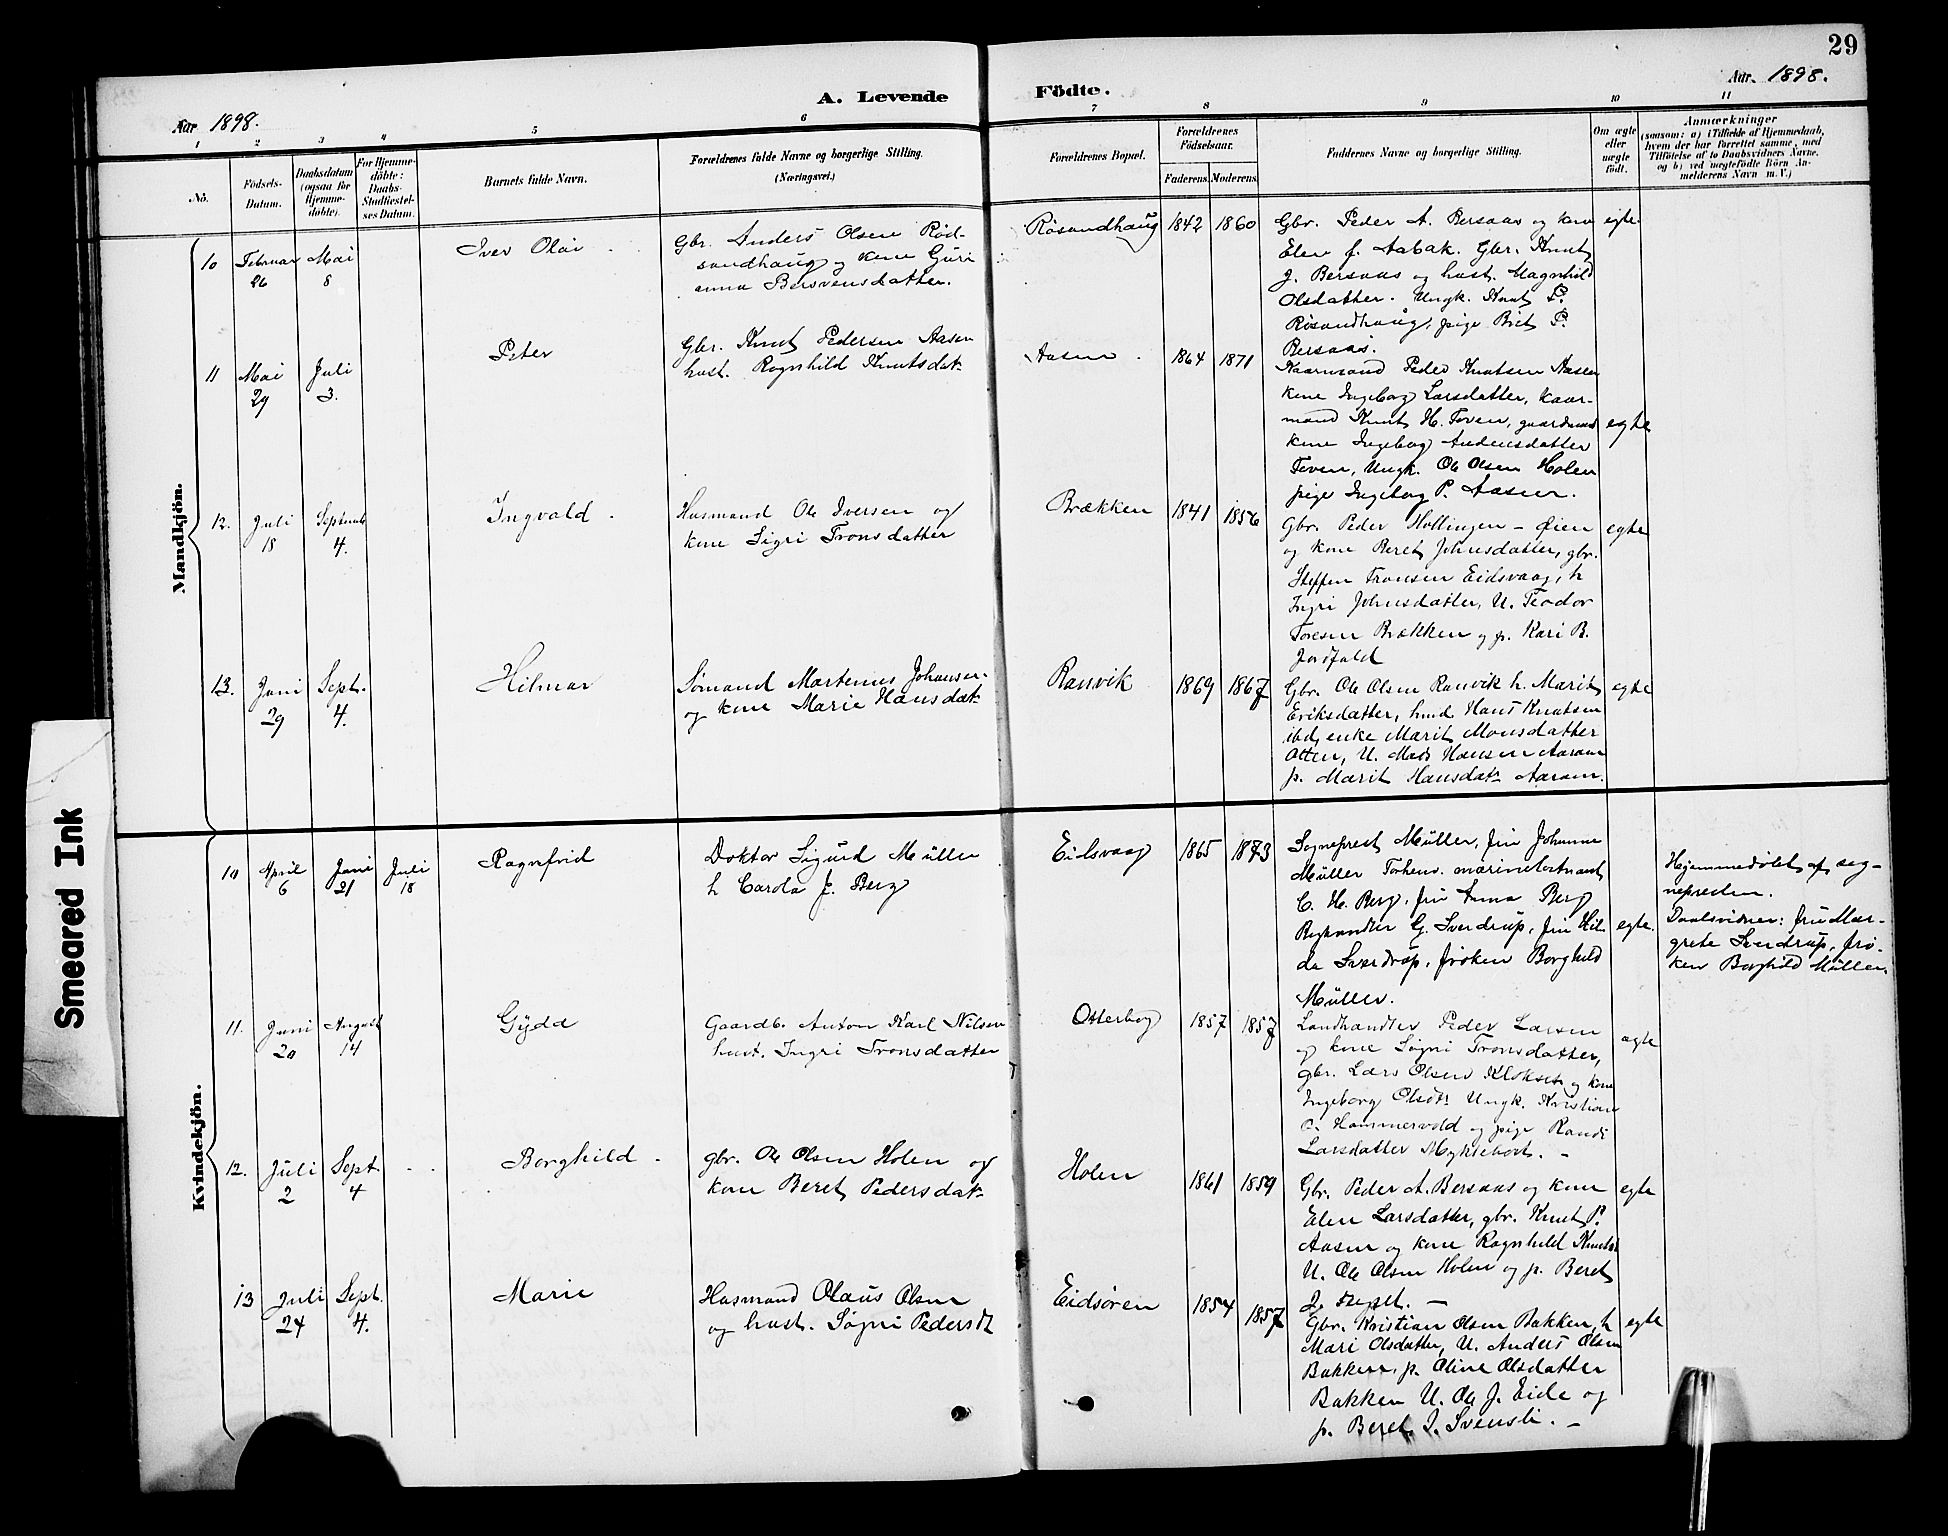 29
Aar 1898.
A. Levende
Födte.
Aar 1898.
1
2
3
4
5
6
7
8
9
10
11
No.
Födsels-
Datum.
Daabsdatum
(ogsaa for
Hjemme-
döbte).
For Hjemme-
döbte:
Daabs-
Stadfæstel-
ses Datum.
Barnets fulde Navn.
Forældrenes fulde Navne og borgerlige Stilling.
(Næringsvei.)
Forældrenes Bopæl.
Forældrenes
Födselsaar.
Faderens.
Moderens.
Faddernes Navne og borgerlige Stilling.
Om ægte
eller
uægte
födt.
Anmærkninger
(saasom: a) i Tilfælde af Hjemmedaab,
hvem der har forrettet samme, med
Tilföielse af to Daabsvidners Navne,
og b) ved uægtefödte Börn An-
melderens Navn m. V.)
Mandkjön.
10
Februar
26
Mai
8
Iver Olai
Gbr. Anders Olsen Rød-
sandhaug og kone Guri
anna Bersvensdatter.
Røsandhaug
1842
1860
Gbr. Peder A. Bersaas og kone
Elen f. Aabak. Gbr. Knut
J. Bersaas og hust. Magnhild
Olsdatter. Ungk. Knut P.
Røsandhaug, pige Brit P.
Bersaas.
egte
11
Mai
29
Juli
3.
Peter
Gbr. Knut Pedersen Aasen
hust. Ragnhild Knutsdat.
Aasen
1864
1871
Kaarmand Peder Knutsen Aasen
kone Ingeborg Larsdatter, kaar-
mand Knut H. Toven, gaardmand
kone Ingeborg Andersdatter
Toven, Ungk. Ole Olsen Holen
pige Ingeborg P. Aasen.
egte
12.
Juli
18
Septemb
4.
Ingvald
Husmand Ole Iversen og
kone Sigri Tronsdatter
Brækken
1841
1856
Gbr. Peder Hollingen - Øien
og kone Beret Johnsdatter, gbr.
Steffen Tronsen Eidsvaag, h
Ingri Johnsdatter, U. Teodor
Toresen Brækken og p. Kari B.
Jordfald
egte
13.
Juni
29
Sept.
4.
Hilmar
Sømand Martenus Johansen
og kone Marie Hansdat.
Ranvik
1869
1867
Gbr. Ole Olsen Ranvik h. Marit
Eriksdatter, hmd Hans Knutsen
ibd, enke Marit Monsdatter
Otten, U. Mads Hansen Aaram
p. Marit Hansdatr Aaram.
egte
Kvindekjön.
10
April
6
Juni
21
Juli
18
Ragnfrid
Doktor Sigurd Müller
h Carola f. Berg
Eidsvaag
1865
1873
Sogneprest Müller, fru Johanne
Müller Forhenv. marineløitnant
C. H. Berg, fru Anna Berg
G. Sverdrup, fru Hil-
da Sverdrup, frøken Borghild
Müller.
egte.
Hjemmedøbt af sog-
nepresten.
Daabsvidner: fru Mar-
grete Sverdrup, frø-
ken Borghild Müller.
11.
Juni
20
August
14
Gydd
Gaardb. Anton Karl Nilsen
hust. Ingri Tronsdatter
Otterbog
1857
1857
Landhandler Peder Larsen
og kone Søgni Tronsdatter,
gbr. Lars Olsen Klokset og kone
Ingeborg Olsdtr Ungk. Kristian
O. Hammervold og pige Randi
Larsdatter Myklebost. -
egte
12.
Juli
2
Sept
4
Borghild
gbr. Ole Olsen Holen og
kone Beret Pedersdat.
Holen
1861
1859
Gbr. Peder A. Bersaas og kone
Elen Larsdatter, gbr. Knut P.
Aasen og kone Ragnhild Knutsd
U. Ole Olsen Holen og p. Beret
J.
egte
13
Juli
24
Sept.
4.
Marie
Husmand Olaus Olsen
og hust. Søgni Pedersdt
Eidsøren
1854
1857
Gbr. Kristian Olsen Bakken, h
Mari Olsdatter, U. Anders Olsen
Bakken, p. Oline Olsdatter
Bakken U. Ole J. Eide og
p. Beret I. Svensli. -
egte
Smeared Ink